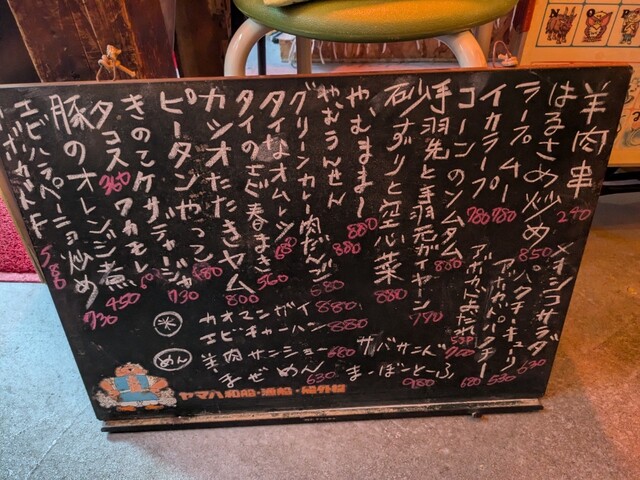 羊肉串 240
はるさめ炒め 850
ラープムー 780
イカラープ 780
コーンのソムタム 880
手羽先と手羽元ガイヤーン 770
砂ずりと空心菜 880
やむままー 880
やむうんせん 880
グリーンカレー肉だんご 680
タイなオムレツ 680
タイのエビ春まき 560
カツオたたきヤム 800
ピータンやっこ 680
きのこケサディージャ 730
タコス 360 ワカモレ 600
豚のオレンジ煮 450
エビハラペーニョ炒め 730
アボカド 580
メキシコサラダ
パクチーキューリ 530
アボカドパクチー 530
アボカドよだれ 680
米
カオマンガイ 880
エビチャーハン 880
めん
羊肉サンショー 680
まぜめん 630
サバサンド 700
まーぼーとーふ 980
ヤマハ和船・漁船・船外機
N O P